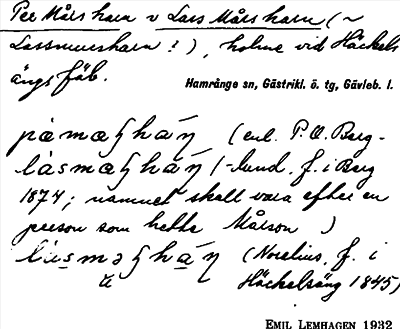 Per Mårs harn v Lars Mårs harn (~
Lassmursharn ?), holme vid Häckels
ängs fäb.
Hamrånge sn, Gästrikl. ö. tg, Gävleb. l.
(enl. P. O. Berg-
lund, f. i Berg
1874; namnet skall vara efter en
person som hette Mårson )
(Norelius, f. i
Häckelsäng 1845)
EMIL LEMHAGEN 1932